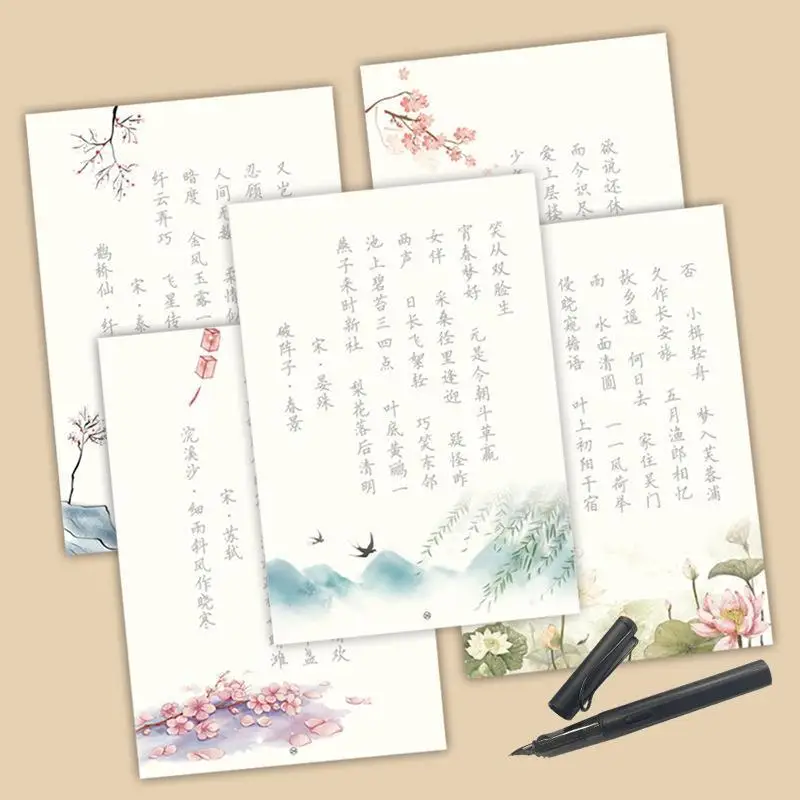 鹊桥仙·纤
宋·秦
纤云弄巧 飞星传
暗度 金风玉露一
人间无数 柔情似
忍顾
又岂
少
爱上层楼
而今识尽
欲说还休
破阵子·春景
宋·晏殊
燕子来时新社 梨花落后清明
池上碧苔三四点 叶底黄鹂一
两声 日长飞絮轻 巧笑东邻
女伴 采桑径里逢迎 疑怪昨
宵春梦好 元是今朝斗草赢
笑从双脸生
侵晓窥檐语 叶上初阳干宿
雨 水面清圆 一一风荷举
故乡遥 何日去 家住吴门
久作长安旅 五月渔郎相忆
否 小楫轻舟 梦入芙蓉浦
浣溪沙·细雨斜风作晓寒
宋·苏轼
滩
盘
欢